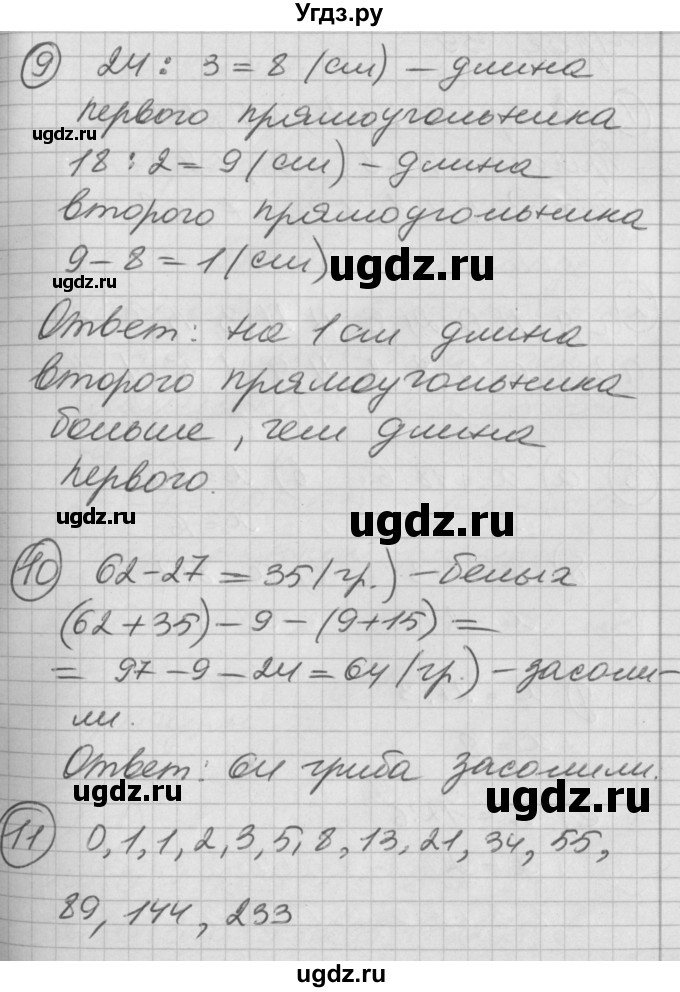 Угдз.ру
9 24 : 3 = 8 (см) – длина
первого прямоугольника
ugdz.ru
18 : 2 = 9 (см) – длина
второго прямоугольника
9 – 8 = 1 (см)
ugdz.ru
ugdz.ru
Ответ: на 1 см длина
второго прямоугольника
больше, чем длина
первого.
ugdz.ru
ugdz.ru
10 62 – 27 = 35 (гр.) – белых
(62 + 35) – 9 – (9 + 15) =
= 97 – 9 – 24 = 64 (гр.) – засоли-
ли.
Ответ: 64 гриба засолили.
ugdz.ru
ugdz.ru
11 0, 1, 1, 2, 3, 5, 8, 13, 21, 34, 55,
89, 144, 233
ugdz.ru